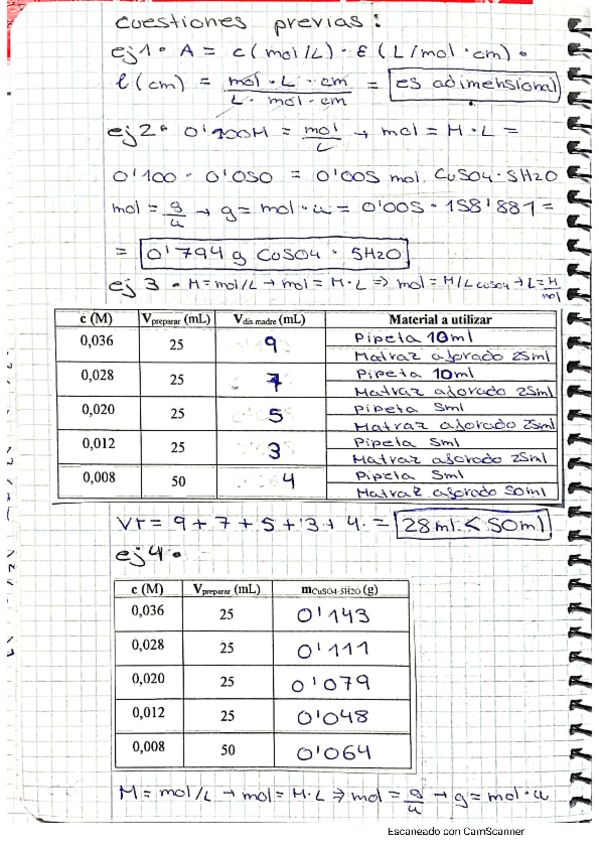 cuestiones previas:
ej1 · A = c(mol/L) · ε (L/mol·cm) ·
l(cm) = mol · L · cm / L · mol · cm = es adimensional
ej2 · 0'100M = mol/L → mol = M · L =
0'100 · 0'050 = 0'005 mol CuSO4 · 5H2O
mol = g/u → g = mol · u = 0'005 · 158'881 =
= 0'794 g CuSO4 · 5H2O
ej 3 · M = mol/L → mol = M · L ⇒ mol = M/L CuSO4 → L = M/mol
c (M) V preparar (mL) V dis madre (mL) Material a utilizar
0,036 25 9 Pipeta 10ml
Matraz aforado 25ml
0,028 25 7 Pipeta 10ml
Matraz aforado 25ml
0,020 25 5 Pipeta 5ml
Matraz aforado 25ml
0,012 25 3 Pipeta 5ml
Matraz aforado 25ml
0,008 50 4 Pipeta 5ml
Matraz aforado 50ml
VT = 9 + 7 + 5 + 3 + 4 = 28ml < 50ml
ej4 ·
c (M) V preparar (mL) mCuSO4·5H2O (g)
0,036 25 0'143
0,028 25 0'111
0,020 25 0'079
0,012 25 0'048
0,008 50 0'064
M = mol/L → mol = M·L ⇒ mol = g/u → g = mol · u
Escaneado con CamScanner